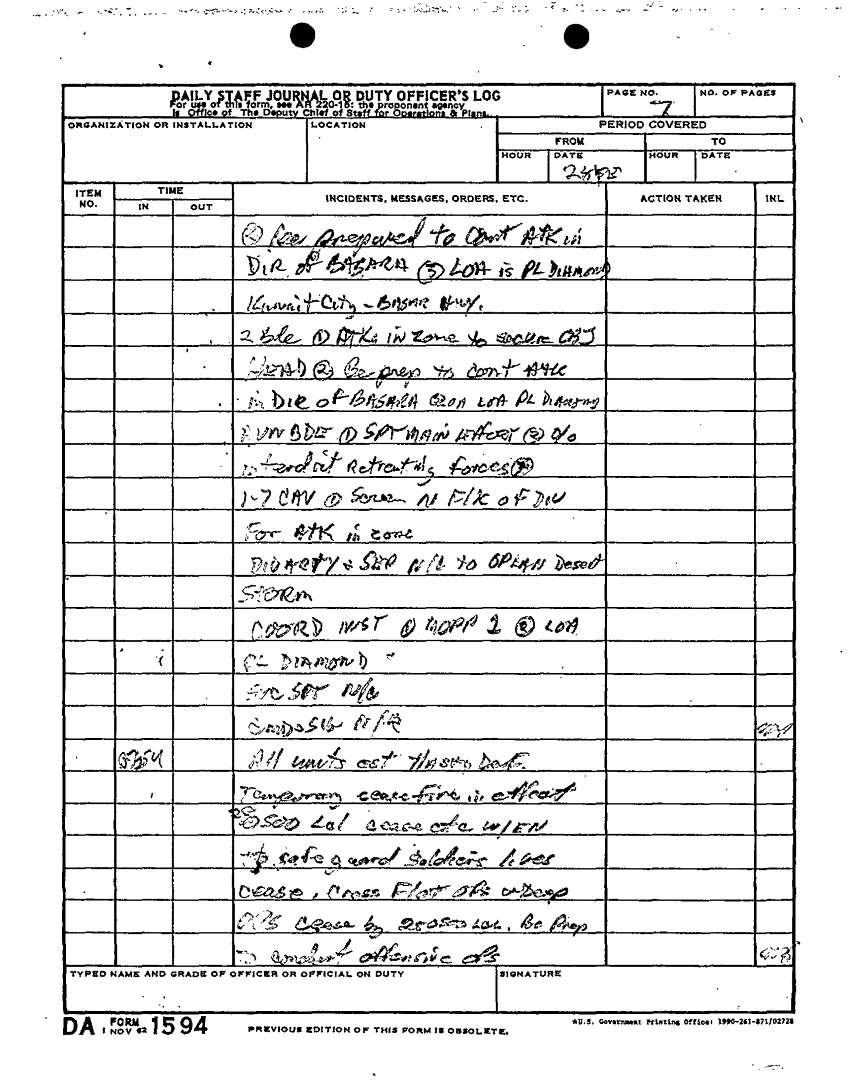 DAILY STAFF JOURNAL OR DUTY OFFICER'S LOG
For use of this form, see AR 220-15; the proponent agency
is Office of The Deputy Chief of Staff for Operations & Plans.
PAGE NO.
7
NO. OF PAGES
ORGANIZATION OR INSTALLATION
LOCATION
PERIOD COVERED
FROM
TO
HOUR
DATE
HOUR
DATE
ITEM NO.
TIME
IN
OUT
INCIDENTS, MESSAGES, ORDERS, ETC.
ACTION TAKEN
INL
② Be prepared to Cont ATK in
DIR of BASARA ③ LOA is PL DIAMOND
Kuwait City - BASAR HWY.
2 Bde ① ATKs in zone to secure OBJ
② Be prep to con't ATK
in DIR of BASARA LOA PL DIAMOND
BDE ① SPT MAIN Effort ②
interdict Retreating forces
1-7 CAV ① Screen N F/K of DIV
For ATK in zone
DIVARTY & N/C to OPLAN Desert
STORM
COORD INST ① MOPP 2 ② LOA
PL DIAMOND
SPT N/C
All units est Hasty Def.
Temporary cease fire in effect
0500 Lcl cease W/EN
to safeguard soldiers lives
cease, Cross Flot OPs
OPS cease by 280500 LCL. Be Prep
offensive ops
TYPED NAME AND GRADE OF OFFICER OR OFFICIAL ON DUTY
SIGNATURE
DA FORM 1 NOV 62 1594
PREVIOUS EDITION OF THIS FORM IS OBSOLETE.
*U.S. Government Printing Office: 1990-261-871/02728